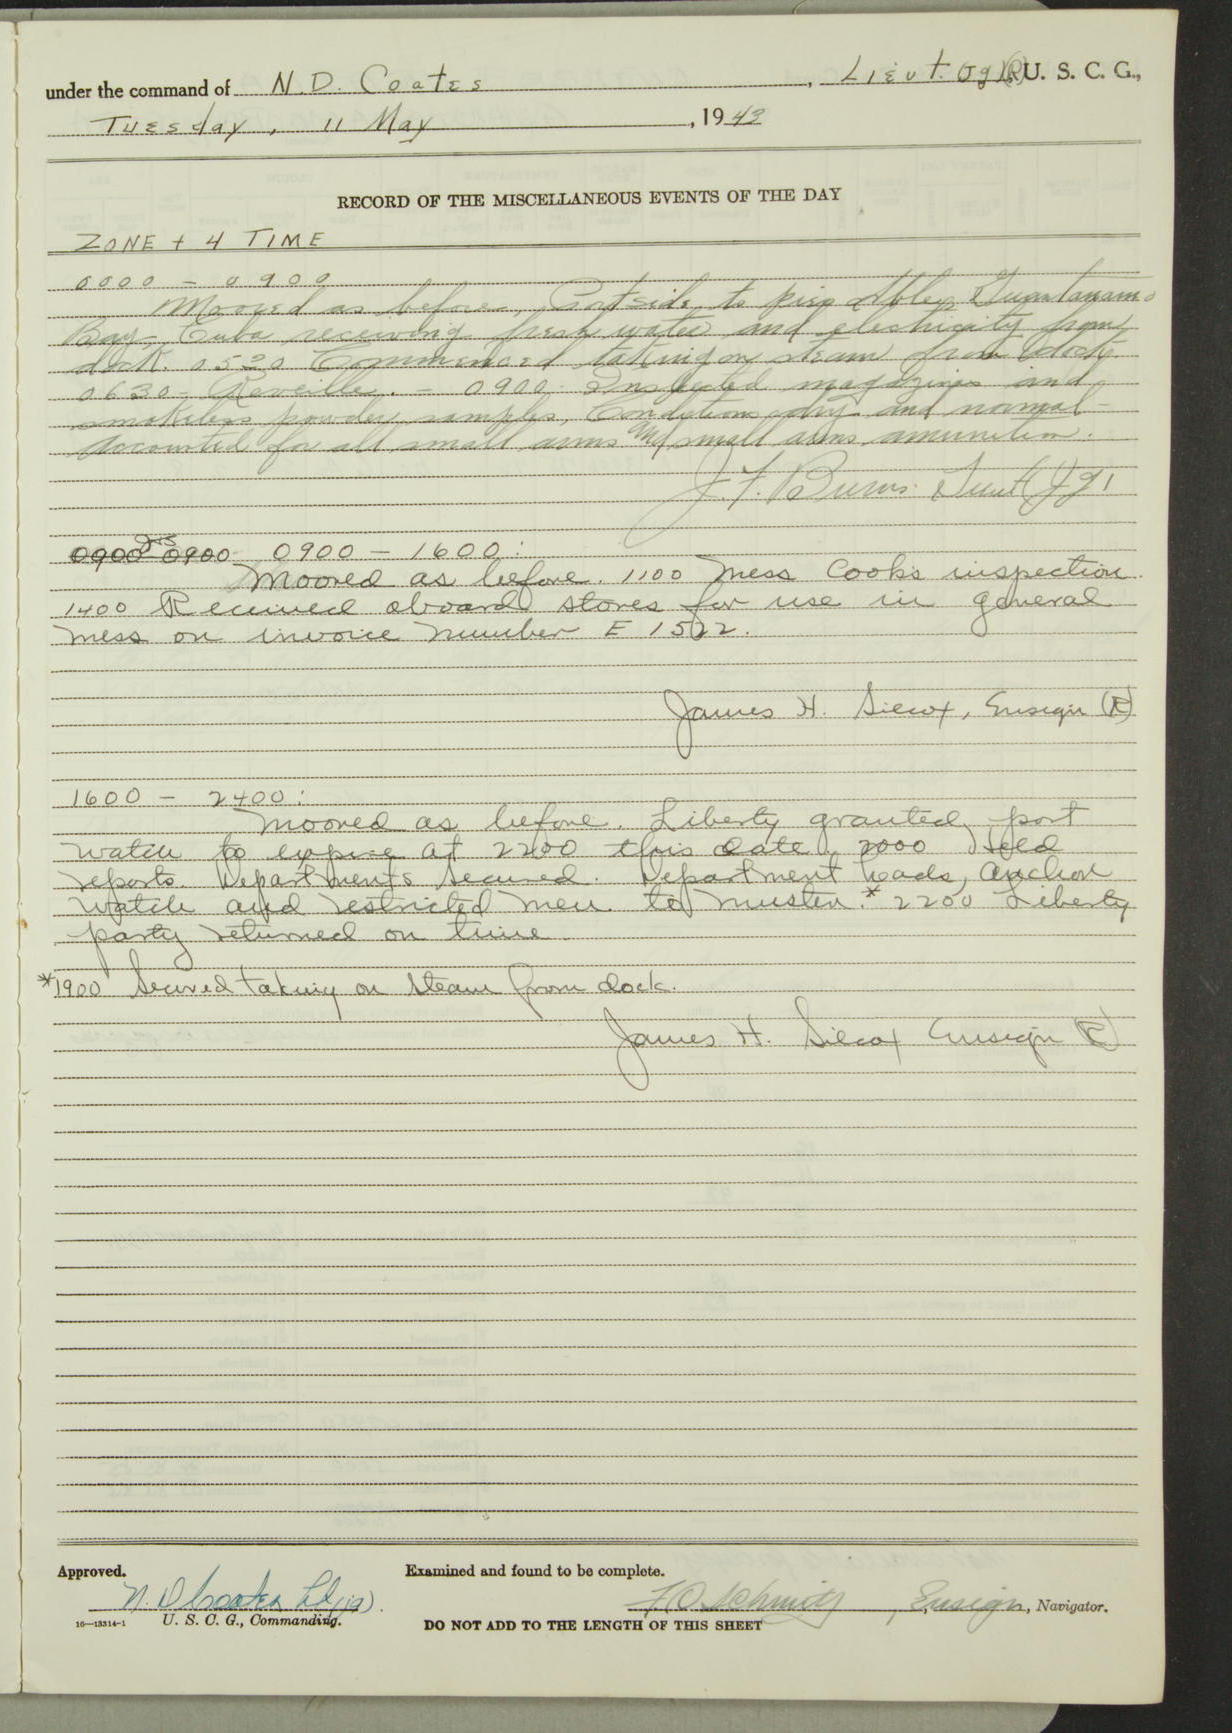 under the command of N.D. Coates, Lieut. (jg)(R) U. S. C. G.,
Tuesday, 11 May, 1943
RECORD OF THE MISCELLANEOUS EVENTS OF THE DAY
ZONE + 4 TIME
0000 - 0900
Moored as before, Portside to pier, Guantanamo
Bay, Cuba receiving fresh water and electricity from
dock. 0520 Commenced taking on steam from dock
0630 - Reveille. - 0900 Inspected magazines and
smokeless powder samples, Conditions dry and normal -
Accounted for all small arms small arms amunition.
J. F. Burns Lieut (jg)
0900 0900 0900 - 1600:
Moored as before. 1100 Mess Cooks inspection.
1400 Received aboard stores for use in general
mess on invoice number E 1522.
James H. Silcox, Ensign (R)
1600 - 2400:
Moored as before. Liberty granted port
watch to expire at 2200 this date. 2000 Held
reports. Departments secured. Department heads, anchor
watch and restricted men to muster.* 2200 Liberty
party returned on time.
*1900 Secured taking on steam from dock.
James H. Silcox Ensign (R)
Approved.
Examined and found to be complete.
N. D Coates Lt (jg).
F O Schmitz, Ensign, Navigator.
16—13314-1
U. S. C. G., Commanding.
DO NOT ADD TO THE LENGTH OF THIS SHEET